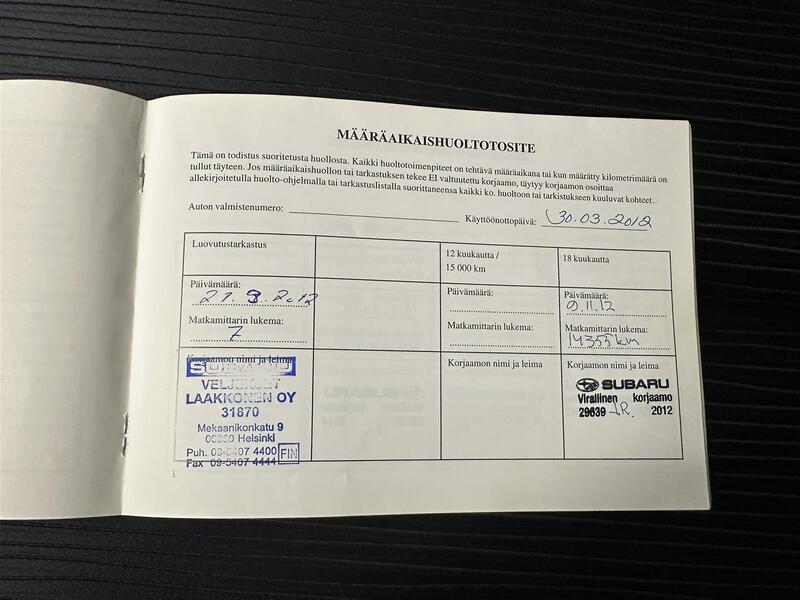 MÄÄRÄAIKAISHUOLTOTOSITE
Tämä on todistus suoritetusta huollosta. Kaikki huoltotoimenpiteet on tehtävä määräaikana tai kun määrätty kilometrimäärä on
tullut täyteen. Jos määräaikaishuollon tai tarkastuksen tekee EI valtuutettu korjaamo, täytyy korjaamon osoittaa
allekirjoitetulla huolto-ohjelmalla tai tarkastuslistalla suorittaneensa kaikki ko. huoltoon tai tarkistukseen kuuluvat kohteet.
Auton valmistenumero:
Käyttöönottopäivä: 30.03.2012
Luovutustarkastus
Päivämäärä:
Matkamittarin lukema:
7
Korjaamon nimi ja leima
SUBARU
VELJEKSET
LAAKKONEN OY
31870
Mekaanikonkatu 9
Helsinki
Puh. 09-5407 4400 FIN
Fax 09-5407 4444
12 kuukautta /
15 000 km
Päivämäärä:
Matkamittarin lukema:
Korjaamon nimi ja leima
18 kuukautta
Päivämäärä:
9.11.12
Matkamittarin lukema:
14355 km
Korjaamon nimi ja leima
SUBARU
Virallinen korjaamo
29639 J.R. 2012